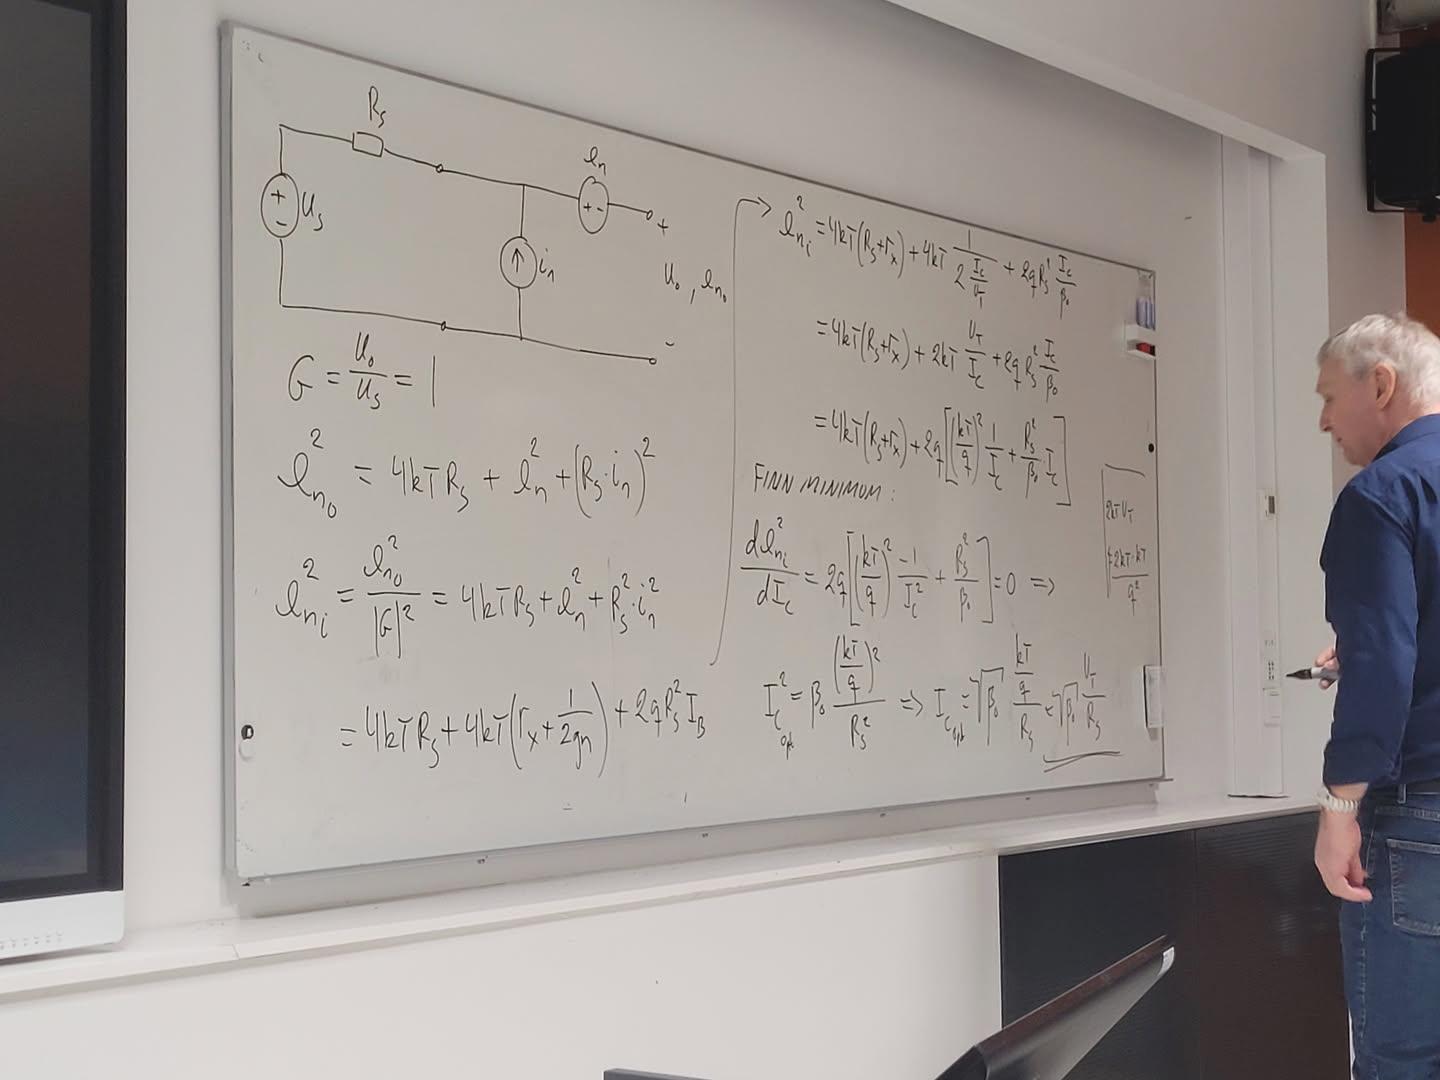 R_s
e_n
+
−
U_s
+ −
i_n
+
U_o , e_{no}
-
G = U_o/U_s = 1
e_{no}^2 = 4kTR_s + e_n^2 + (R_s · i_n)^2
e_{ni}^2 = e_{no}^2/|G|^2 = 4kTR_s + e_n^2 + R_s^2 · i_n^2
= 4kTR_s + 4kT(r_x + 1/(2gm)) + 2qR_s^2 I_B
→ e_{ni}^2 = 4kT(R_s+r_x) + 4kT 1/(2 I_c/U_T) + 2qR_s^2 I_c/β_0
= 4kT(R_s+r_x) + 2kT U_T/I_c + 2qR_s^2 I_c/β_0
= 4kT(R_s+r_x) + 2q[(kT/q)^2 1/I_c + R_s^2/β_0 · I_c]
FINN MINIMUM :
de_{ni}^2/dI_c = 2q[(kT/q)^2 -1/I_c^2 + R_s^2/β_0] = 0 =>
I_{c opt}^2 = β_0 (kT/q)^2/R_s^2 => I_{c opt} = √β_0 (kT/q)/R_s = √β_0 U_T/R_s
2kT U_T
= 2kT·kT/q^2